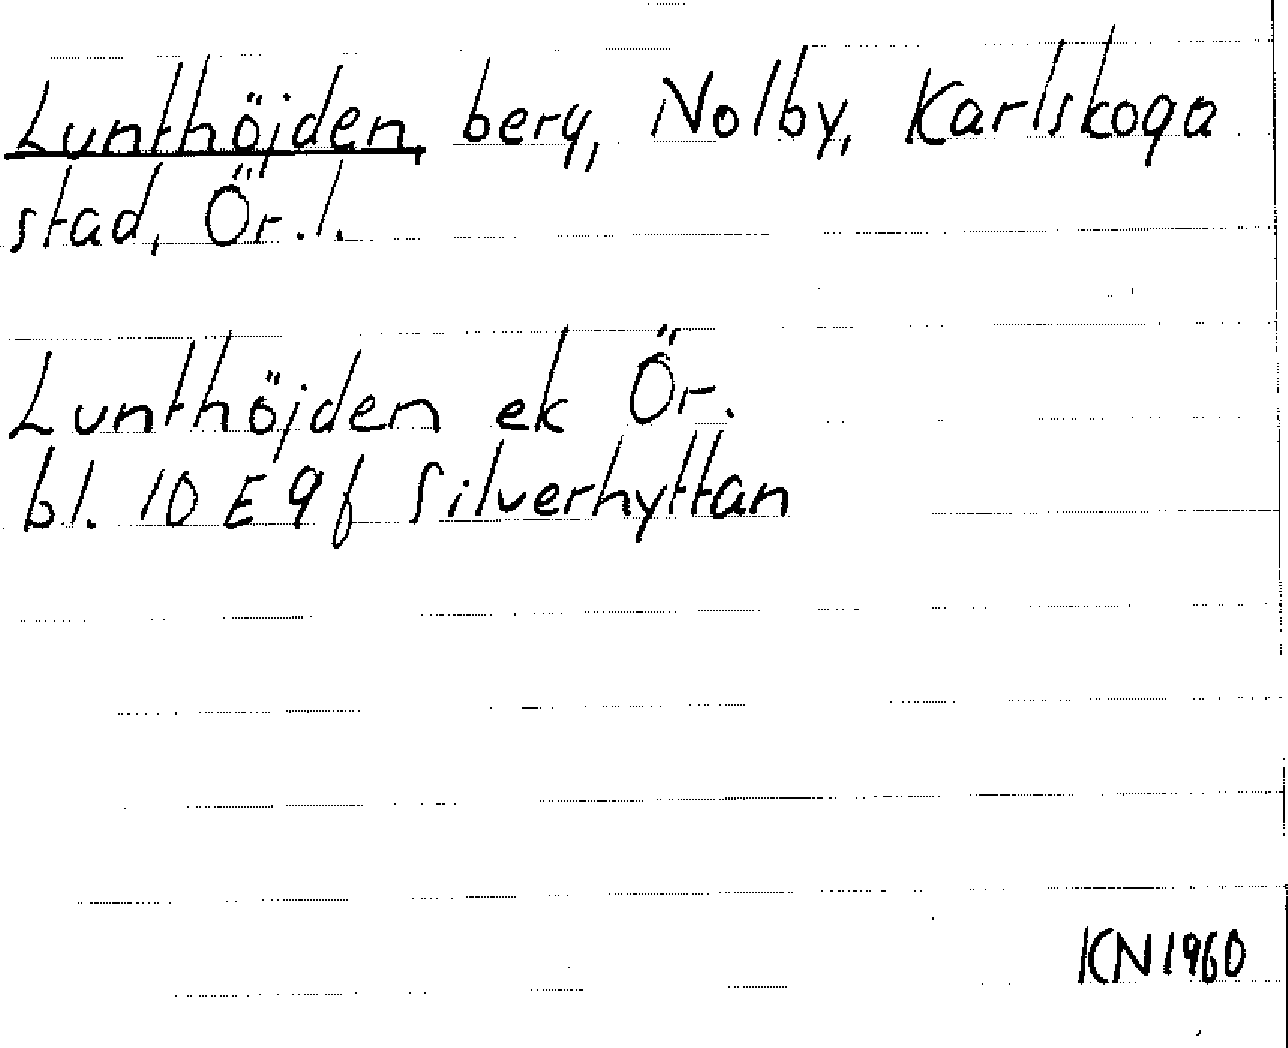 Lunthöjden, berg, Nolby, Karlskoga
stad, Ör.l.
Lunthöjden ek Ör.
bl. 10 E 9 f Silverhyttan
KN 1960